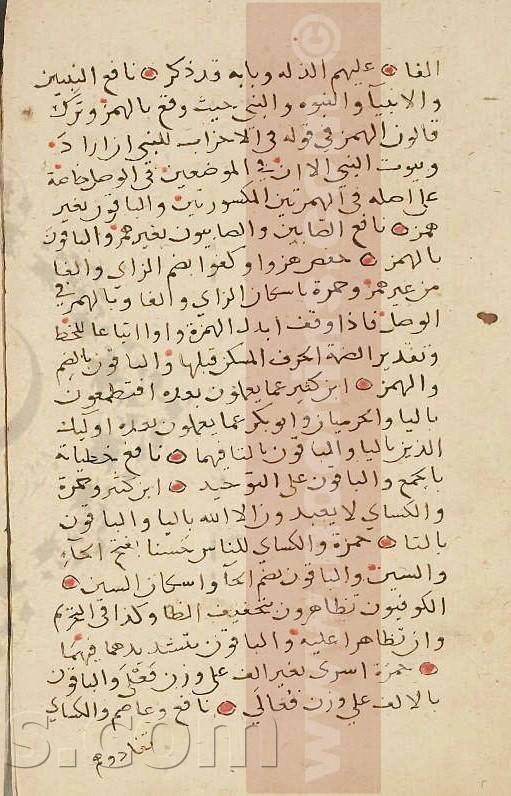 الفا ۞ عليهم الذله وبابه قد ذكر ۞ نافع النبيين
والانبيآ والنبوه والنبي حيث وقع بالهمز وترك
قالون الهمز في قوله في الاحزاب للنبي ان اراد
وبيوت النبي الا ان في الموضعين في الوصل خاصة
على اصله في الهمزتين المكسورتين والباقون بغير
همز ۞ نافع الصابين والصابون بغير همز والباقون
بالهمز ۞ حفص هزوا وكفوا بضم الزاي والفا
من غير همز وحمزة باسكان الزاي والفا وبالهمز في
الوصل فاذا وقف ابدل الهمزة واوا اتباعا للخط
وتقدير الضمة الحرف المسكن قبلها والباقون بالضم
والهمز ۞ ابن كثير عما يعملون بعده افتطمعون
باليا والحرميان وابو بكر عما يعملون بعده اوليك
الذين باليا والباقون بالتا فيهما ۞ نافع خطياته
بالجمع والباقون على التوحيد ۞ ابن كثير وحمزة
والكساي لا يعبدون الا الله باليا والباقون
بالتا ۞ حمزة والكساي للناس حسنا بفتح الحآء
والسين والباقون بضم الحا واسكان السين ۞
الكوفيون تظاهرون بتخفيف الظا وكذا في التحريم
وان تظاهرا عليه والباقون بتشديدهما فيهما
۞ حمزة اسرى بغير الف على وزن فَعْلَى والباقون
بالالف على وزن فُعَالَى ۞ نافع وعاصم والكساي
تفادوهم
s.com